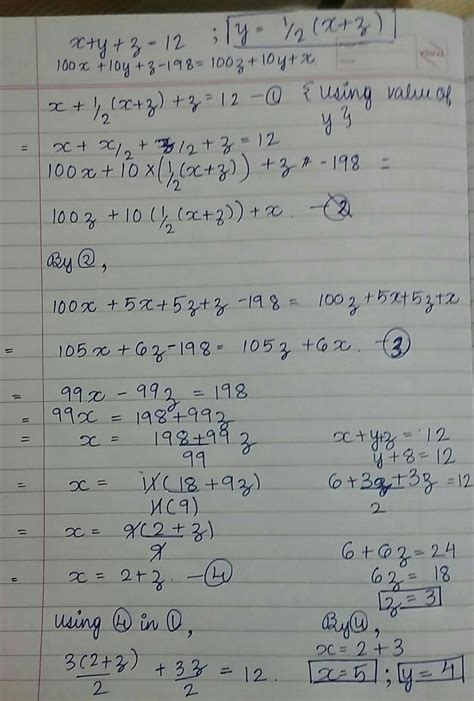 x+y+z=12 ; y = 1/2 (x+z)
100x+10y+z-198=100z+10y+x
x + 1/2 (x+z) + z = 12 - ① {using value of y}
= x + x/2 + z/2 + z = 12
100x + 10 × (1/2 (x+z)) + z - 198 =
100z + 10 (1/2 (x+z)) + x. - ②
By ②,
100x + 5x + 5z + z - 198 = 100z + 5x + 5z + x
= 105x + 6z - 198 = 105z + 6x. - ③
= 99x - 99z = 198
= 99x = 198 + 99z
= x = (198+99z)/99
= x = 11(18+9z)/11(9)
= x = 9(2+z)/9
= x = 2+z. - ④
using ④ in ①,
3(2+z)/2 + 3z/2 = 12.
x+y+z = 12
y+8 = 12
(6+3z+3z)/2 = 12
6+6z = 24
6z = 18
z = 3
By ④,
x = 2+3
x=5 ; y=4